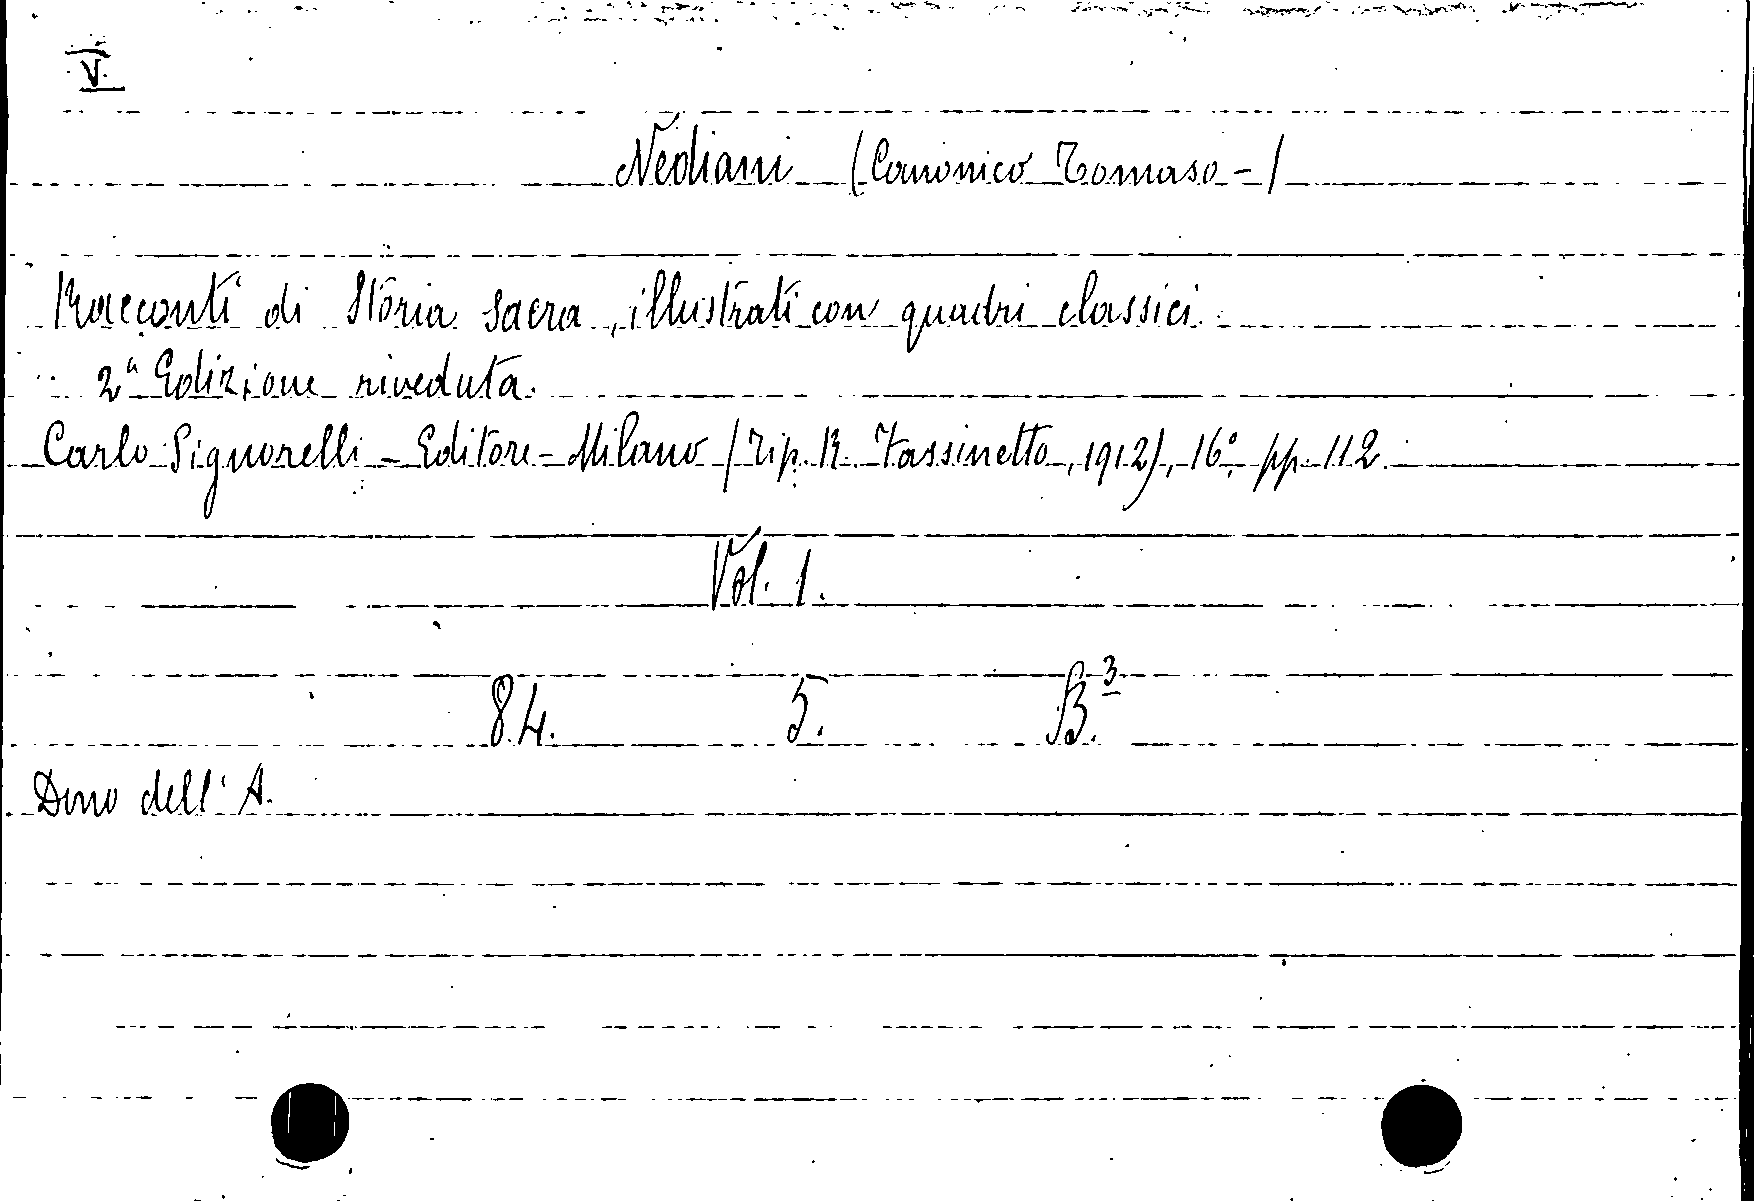 V.
Nediani (Canonico Tomaso-)
Racconti di Storia sacra, illustrati con quadri classici.
2ª Edizione riveduta.
Carlo Signorelli - Editore - Milano (Tip. R. Tassinetto, 1912), 16º, pp. 112.
Vol. 1.
84. 5. B.3
Dono dell' A.